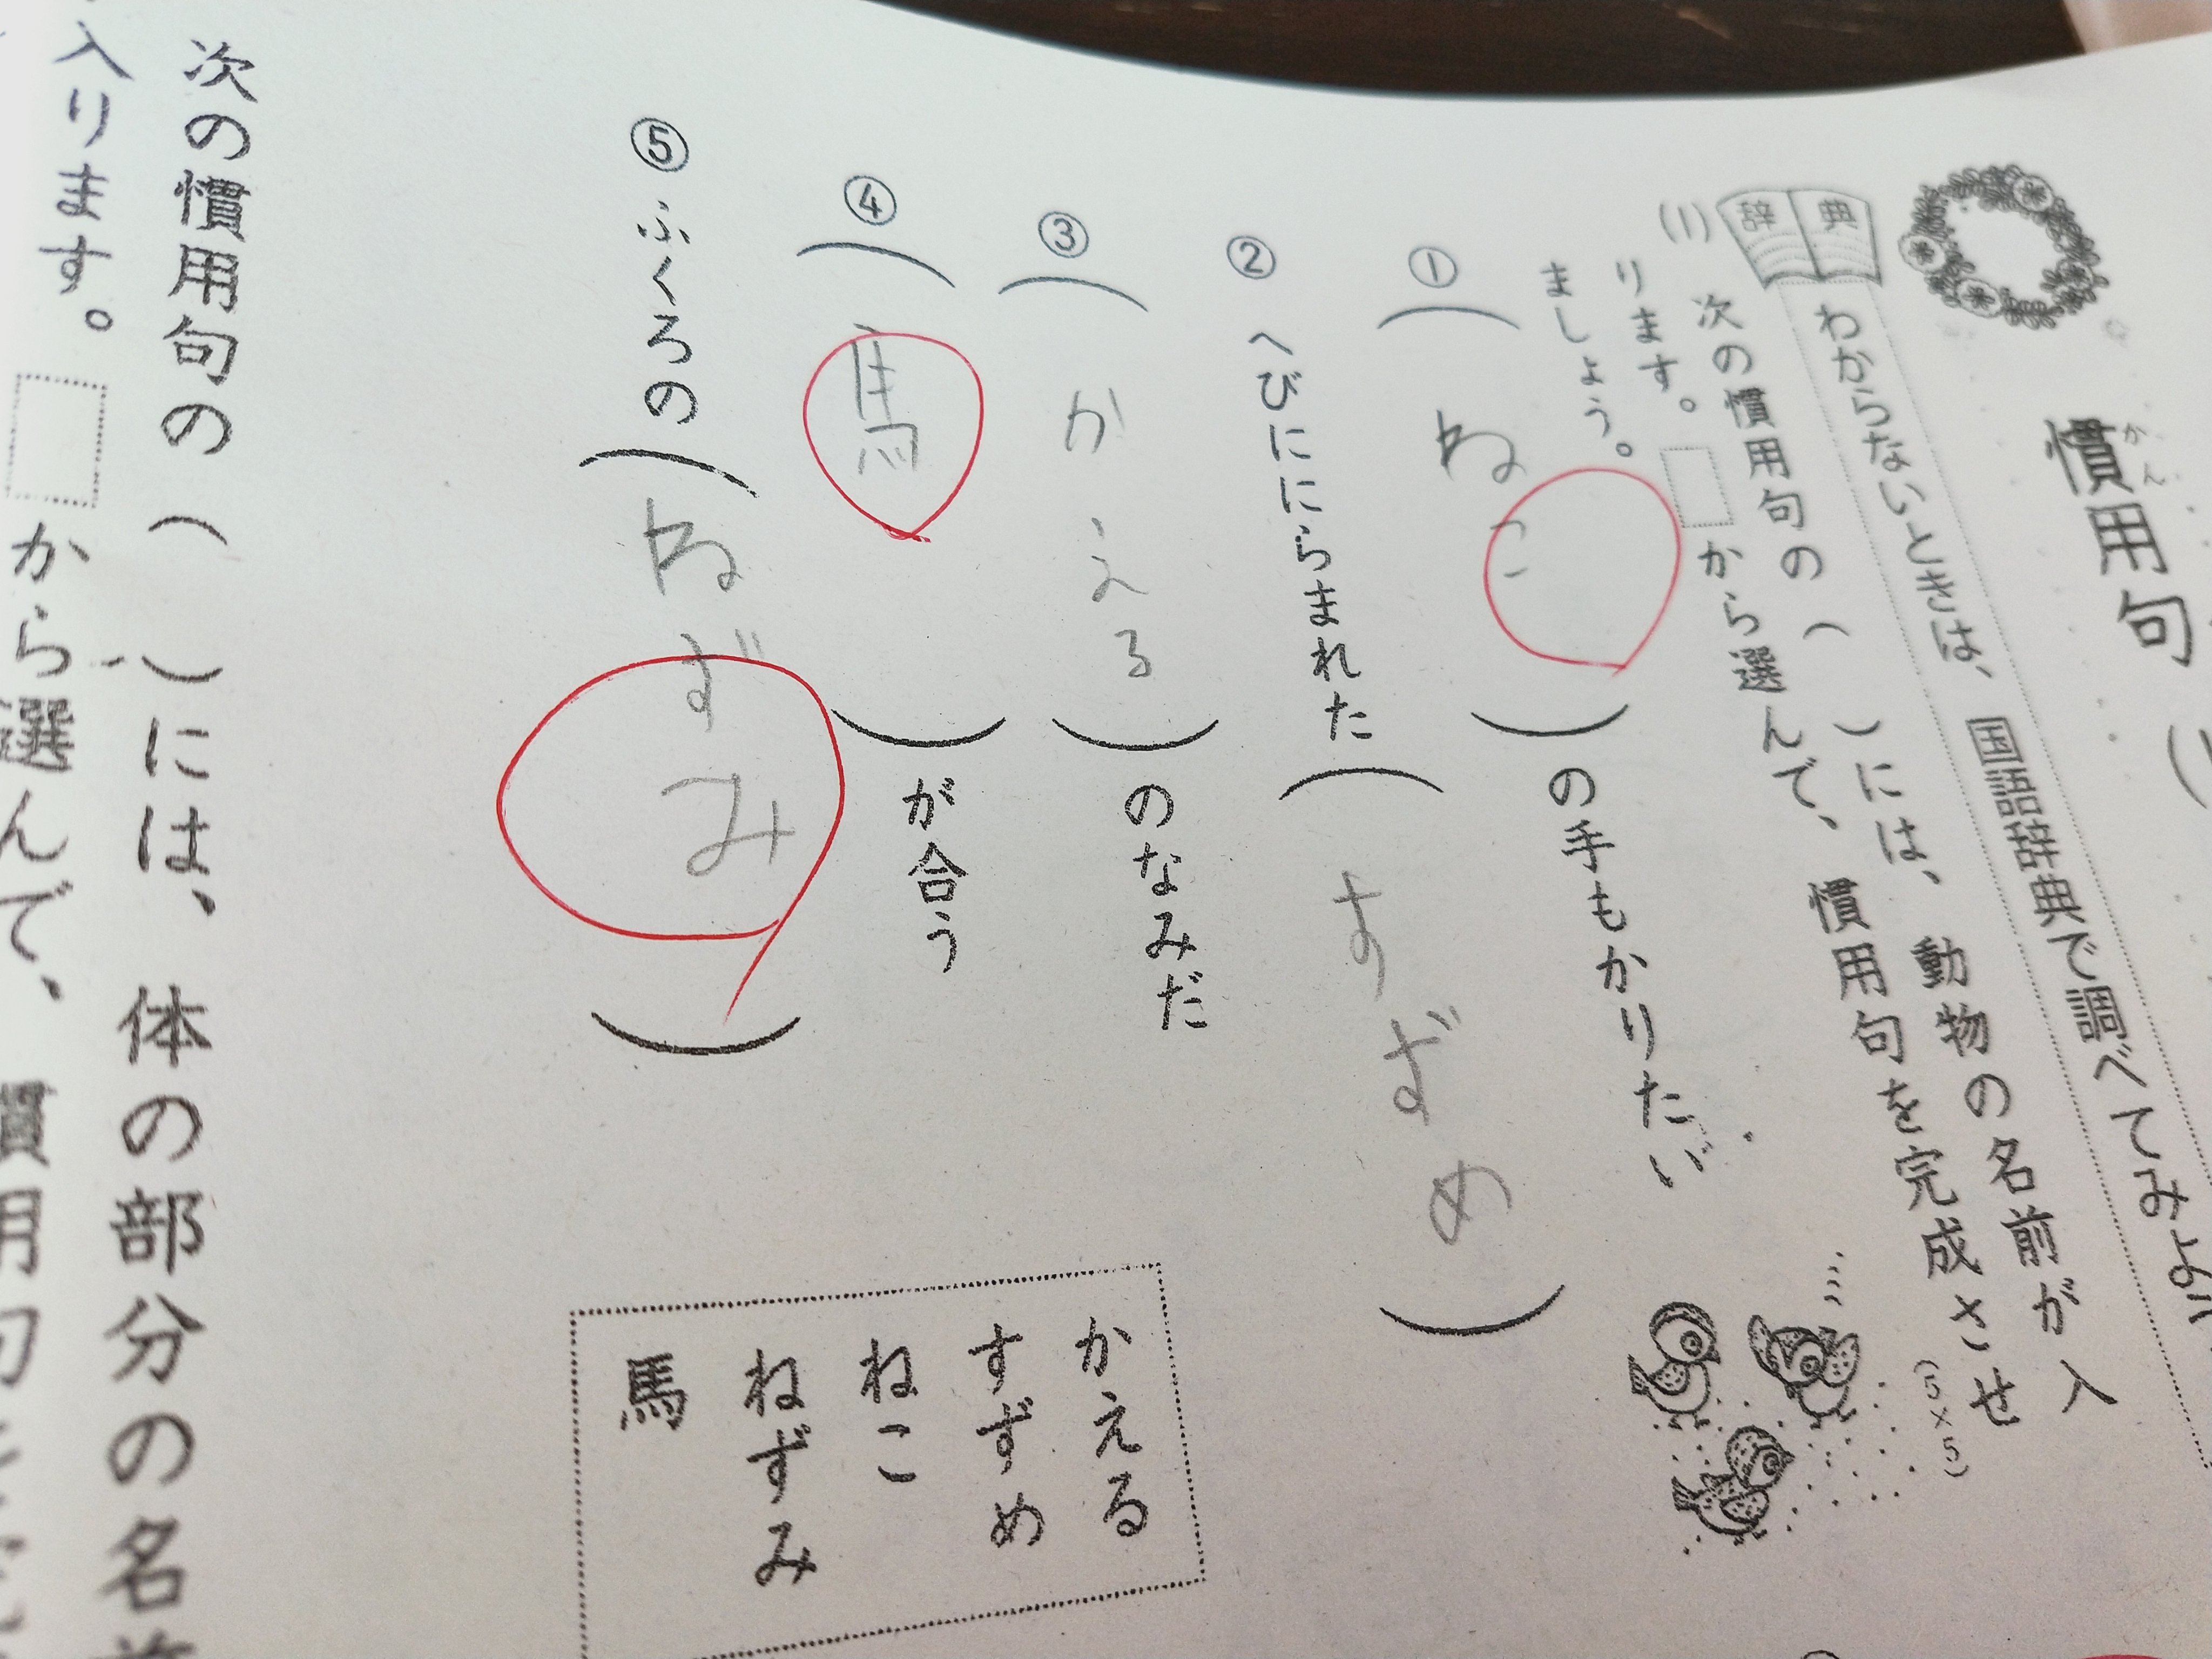 慣用句
かん
わからないときは、国語辞典で調べてみよ
辞典
(1) 次の慣用句の( )には、動物の名前が入
ります。□から選んで、慣用句を完成させ
ましょう。
(5×5)
① (ねこ)の手もかりたい
② へびににらまれた(すずめ)
③ (かえる)のなみだ
④ (馬)が合う
⑤ ふくろの(ねずみ)
かえる
すずめ
ねこ
ねずみ
馬
次の慣用句の( )には、体の部分の名前
入ります。□から選んで、慣用句